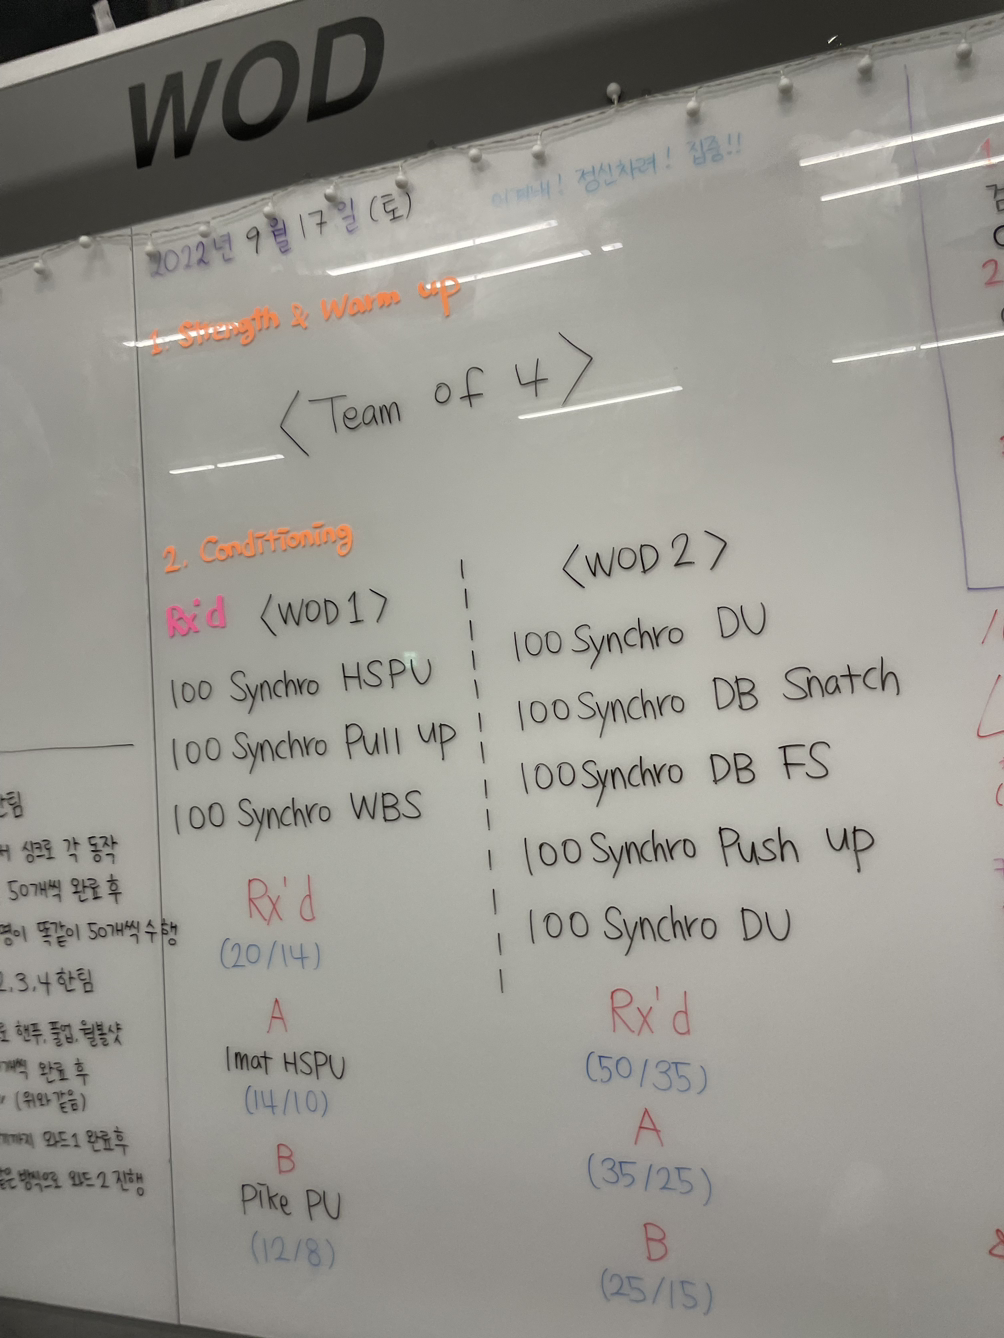 WOD
2022년 9월 17일 (토)
이겨내! 정신차려! 집중!!
1. Strength & Warm up
<Team of 4>
2. Conditioning
Rx'd <WOD1>
100 Synchro HSPU
100 Synchro Pull up
100 Synchro WBS
Rx'd
(20/14)
A
1mat HSPU
(14/10)
B
Pike PU
(12/8)
<WOD2>
100 Synchro DU
100 Synchro DB Snatch
100 Synchro DB FS
100 Synchro Push up
100 Synchro DU
Rx'd
(50/35)
A
(35/25)
B
(25/15)
한팀
싱크로 각 동작
50개씩 완료 후
명이 똑같이 50개씩 수행
2,3,4 한팀
핸푸, 풀업, 월볼샷
개씩 완료 후
(위와 같음)
와드1 완료후
같은 방식으로 와드2 진행
1
2